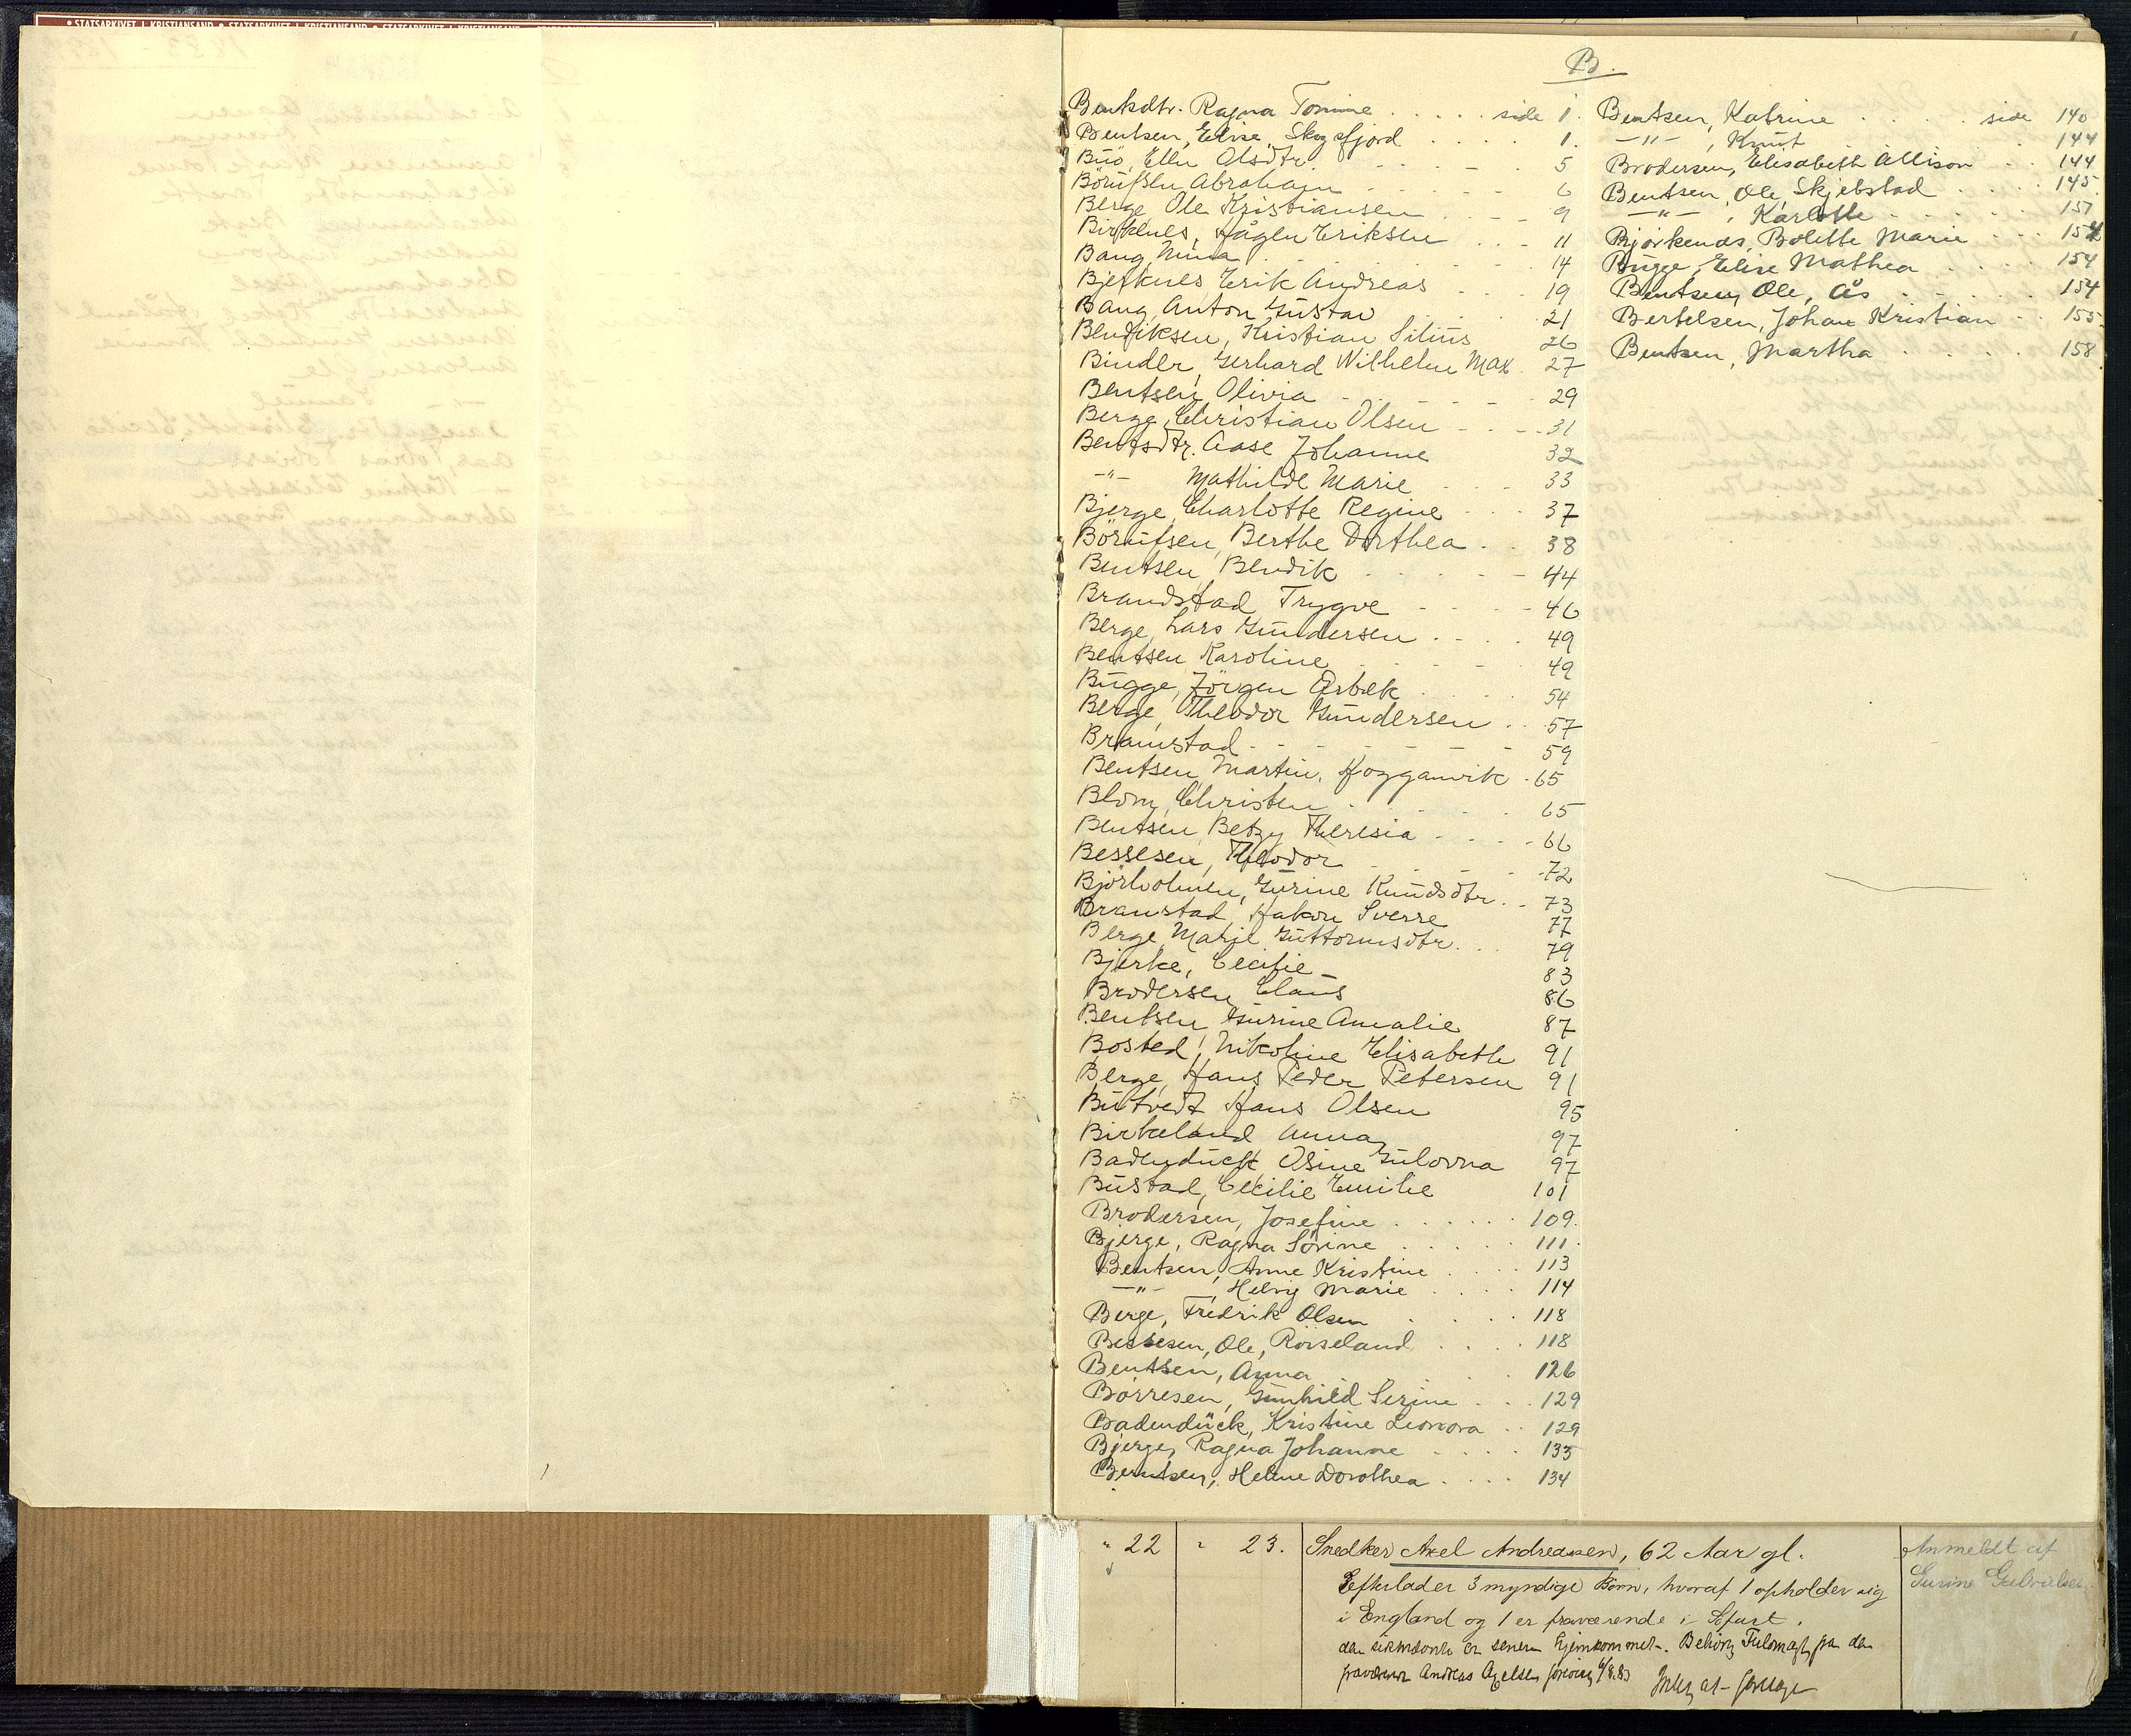 STATSARKIVET I KRISTIANSAND * STATSARKIVET I KRISTIANSAND * STATSARKIVET I KRISTIANSAND
B.
Bentsdtr. Ragna Tomine side 1.
Bentsen, Elise, Skogsfjord 1.
Buö, Ellen Olsdtr 5
Börufsen, Abraham 6
Berge, Ole Kristiansen 9
Birkenes, Hågen Eriksen 11
Bang, Mina 14
Bjerknes Erik Andreas 19
Bang, Anton Gustav 21
Bendiksen, Kristian Silius 26
Binder, Gerhard Wilhelm Max 27
Bentsen, Olivia 29
Berge, Christian Olsen 31
Bentsdtr. Aase Johanne 32
-"- Mathilde Marie 33
Bjerge, Charlotte Regine 37
Börufsen, Berthe Dorthea 38
Bentsen, Bendik 44
Brandstad Trygve 46
Berge, Lars Gundersen 49
Bentsen Karoline 49
Bugge, Jörgen Örbek 54
Berge, Theodor Gundersen 57
Bramstad 59
Bentsen, Martin, Hogganvik 65
Blom, Christen 65
Bentsen, Betzy Theresia 66
Bessesen, Theodor 72
Björholmen, Gurine Knudsdtr. 73
Bramstad, Hakon Sverre 77
Berge, Marje Guttormsdtr. 79
Bjerke, Cecilie 83
Brodersen, Claus 86
Bentsen, Gurine Amalie 87
Bosted, Nikoline Elisabeth 91
Berge, Hans Peder Petersen 91
Butvedt Hans Olsen 95
Birkeland Anna 97
Badendück Osine Gulovna 97
Bustad, Cecilie Emilie 101
Brodersen, Josefine 109.
Bjerge, Ragna Sörine 111.
Bentsen, Anne Kristine 113
-"- , Helvig Marie 114
Berge, Fredrik Olsen 118
Bessesen, Ole, Röiseland 118
Bentsen, Anna 126
Börresen, Gunhild Serine 129
Badendück, Kristine Leonora 129
Bjerge, Ragna Johanne 133
Berntsen, Helene Dorothea 134
Bentsen, Katrine side 140
-"- , Knut 144
Brodersen, Elisabeth Allison 144
Bentsen, Ole, Skjebstad 145
-"- , Karlotte 151
Björkenäs, Bolette Marie 154
Bugge, Elise Mathea 154
Bentsen, Ole, Ås 154
Bertelsen, Johan Kristian 155
Bentsen, Martha 158
" 22 " 23. Snedker Axel Andreasen, 62 Aar gl.
Efterlader 3 myndige Börn, hvoraf 1 opholder sig
i England og 1 er fraværende i Sjøfart.
den sidstnævnte er senere hjemkommet. fra den
fraværende Andreas Axelsen 6/8.83
Anmeldt af
Gurine Gabrielsen